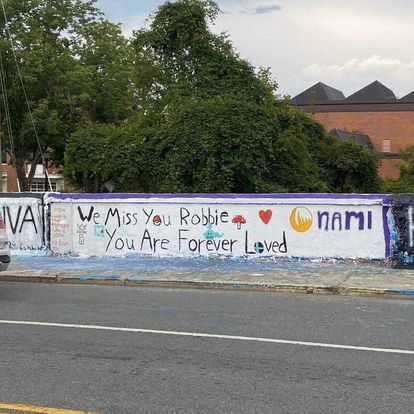 IVA
We Miss You Robbie
You Are Forever Loved
nami